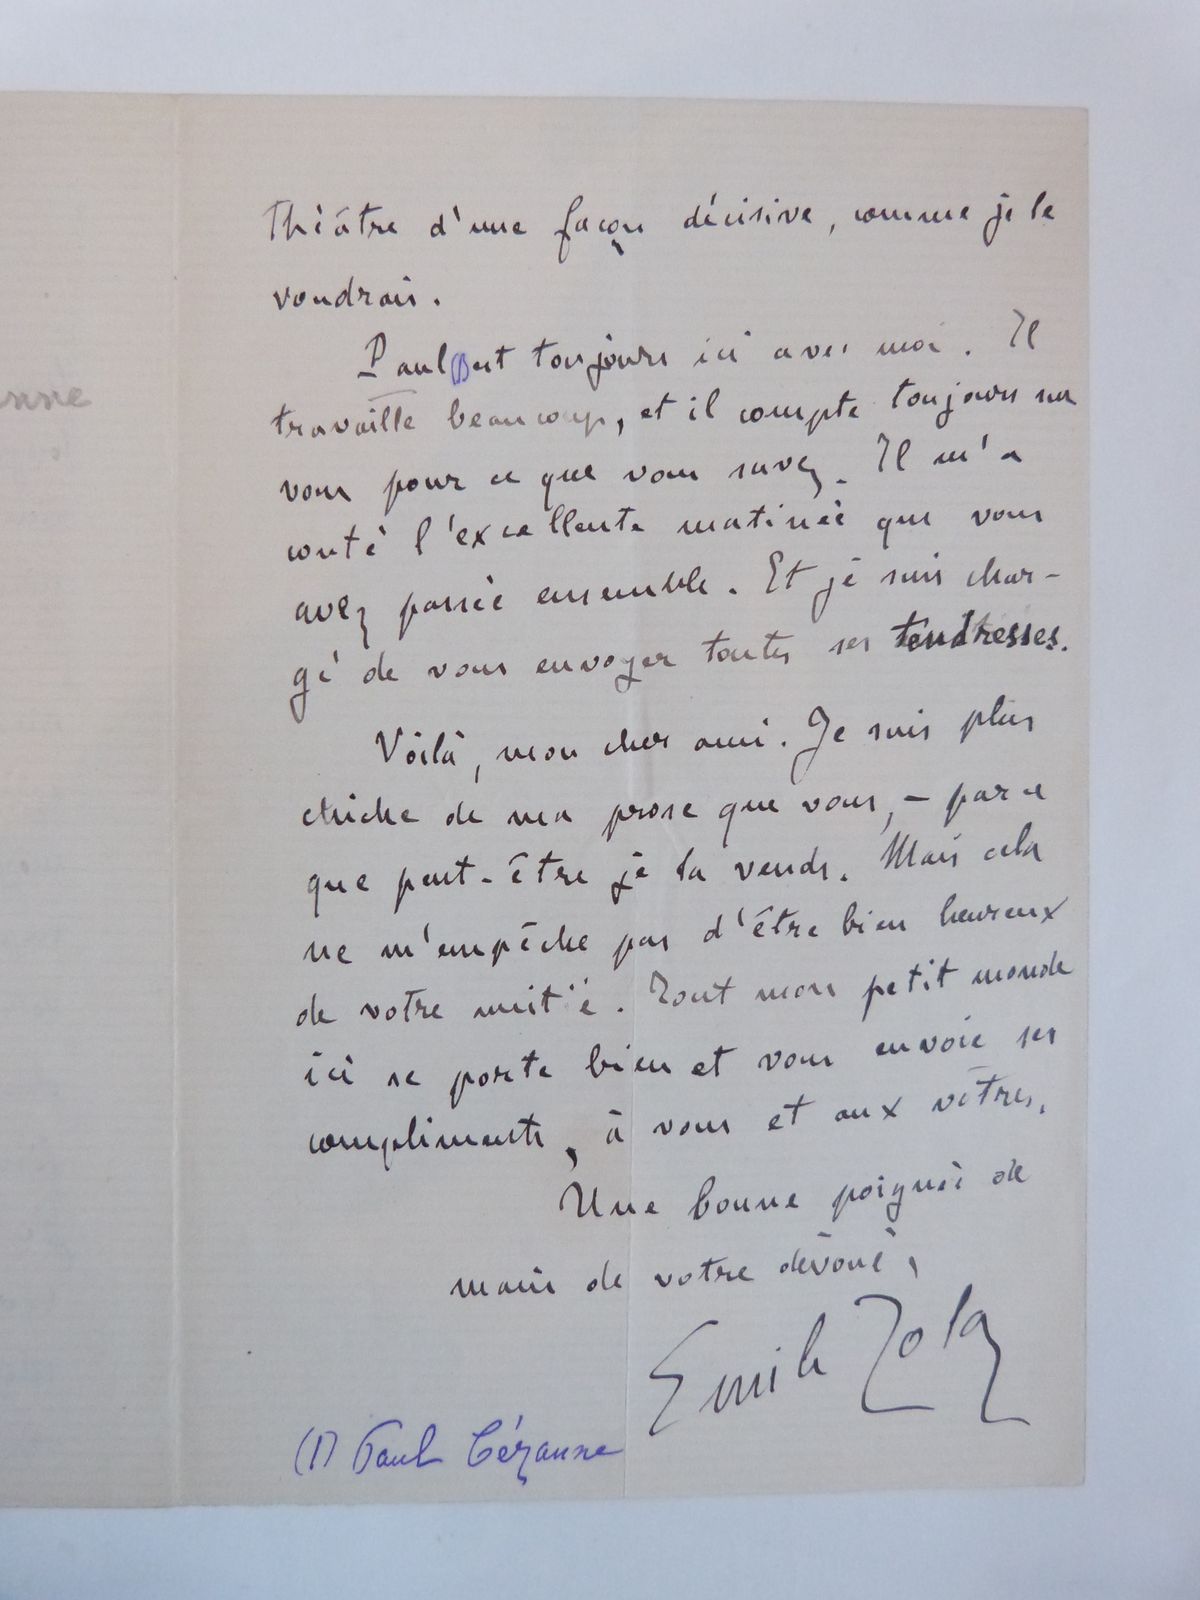 théâtre d'une façon décisive, comme je le
voudrais.
Paul (1) est toujours ici avec moi. Il
travaille beaucoup, et il compte toujours sur
vous pour ce que vous savez. Il m'a
conté l'excellente matinée que vous
avez passée ensemble. Et je suis char-
gé de vous envoyer toutes ses tendresses.
Voilà, mon cher ami. Je suis plus
chiche de ma prose que vous, - parce
que peut-être je la vends. Mais cela
ne m'empêche pas d'être bien heureux
de votre amitié. Tout mon petit monde
ici se porte bien et vous envoie ses
compliments, à vous et aux vôtres.
Une bonne poignée de
main de votre dévoué,
Emile Zola
(1) Paul Cézanne
nne